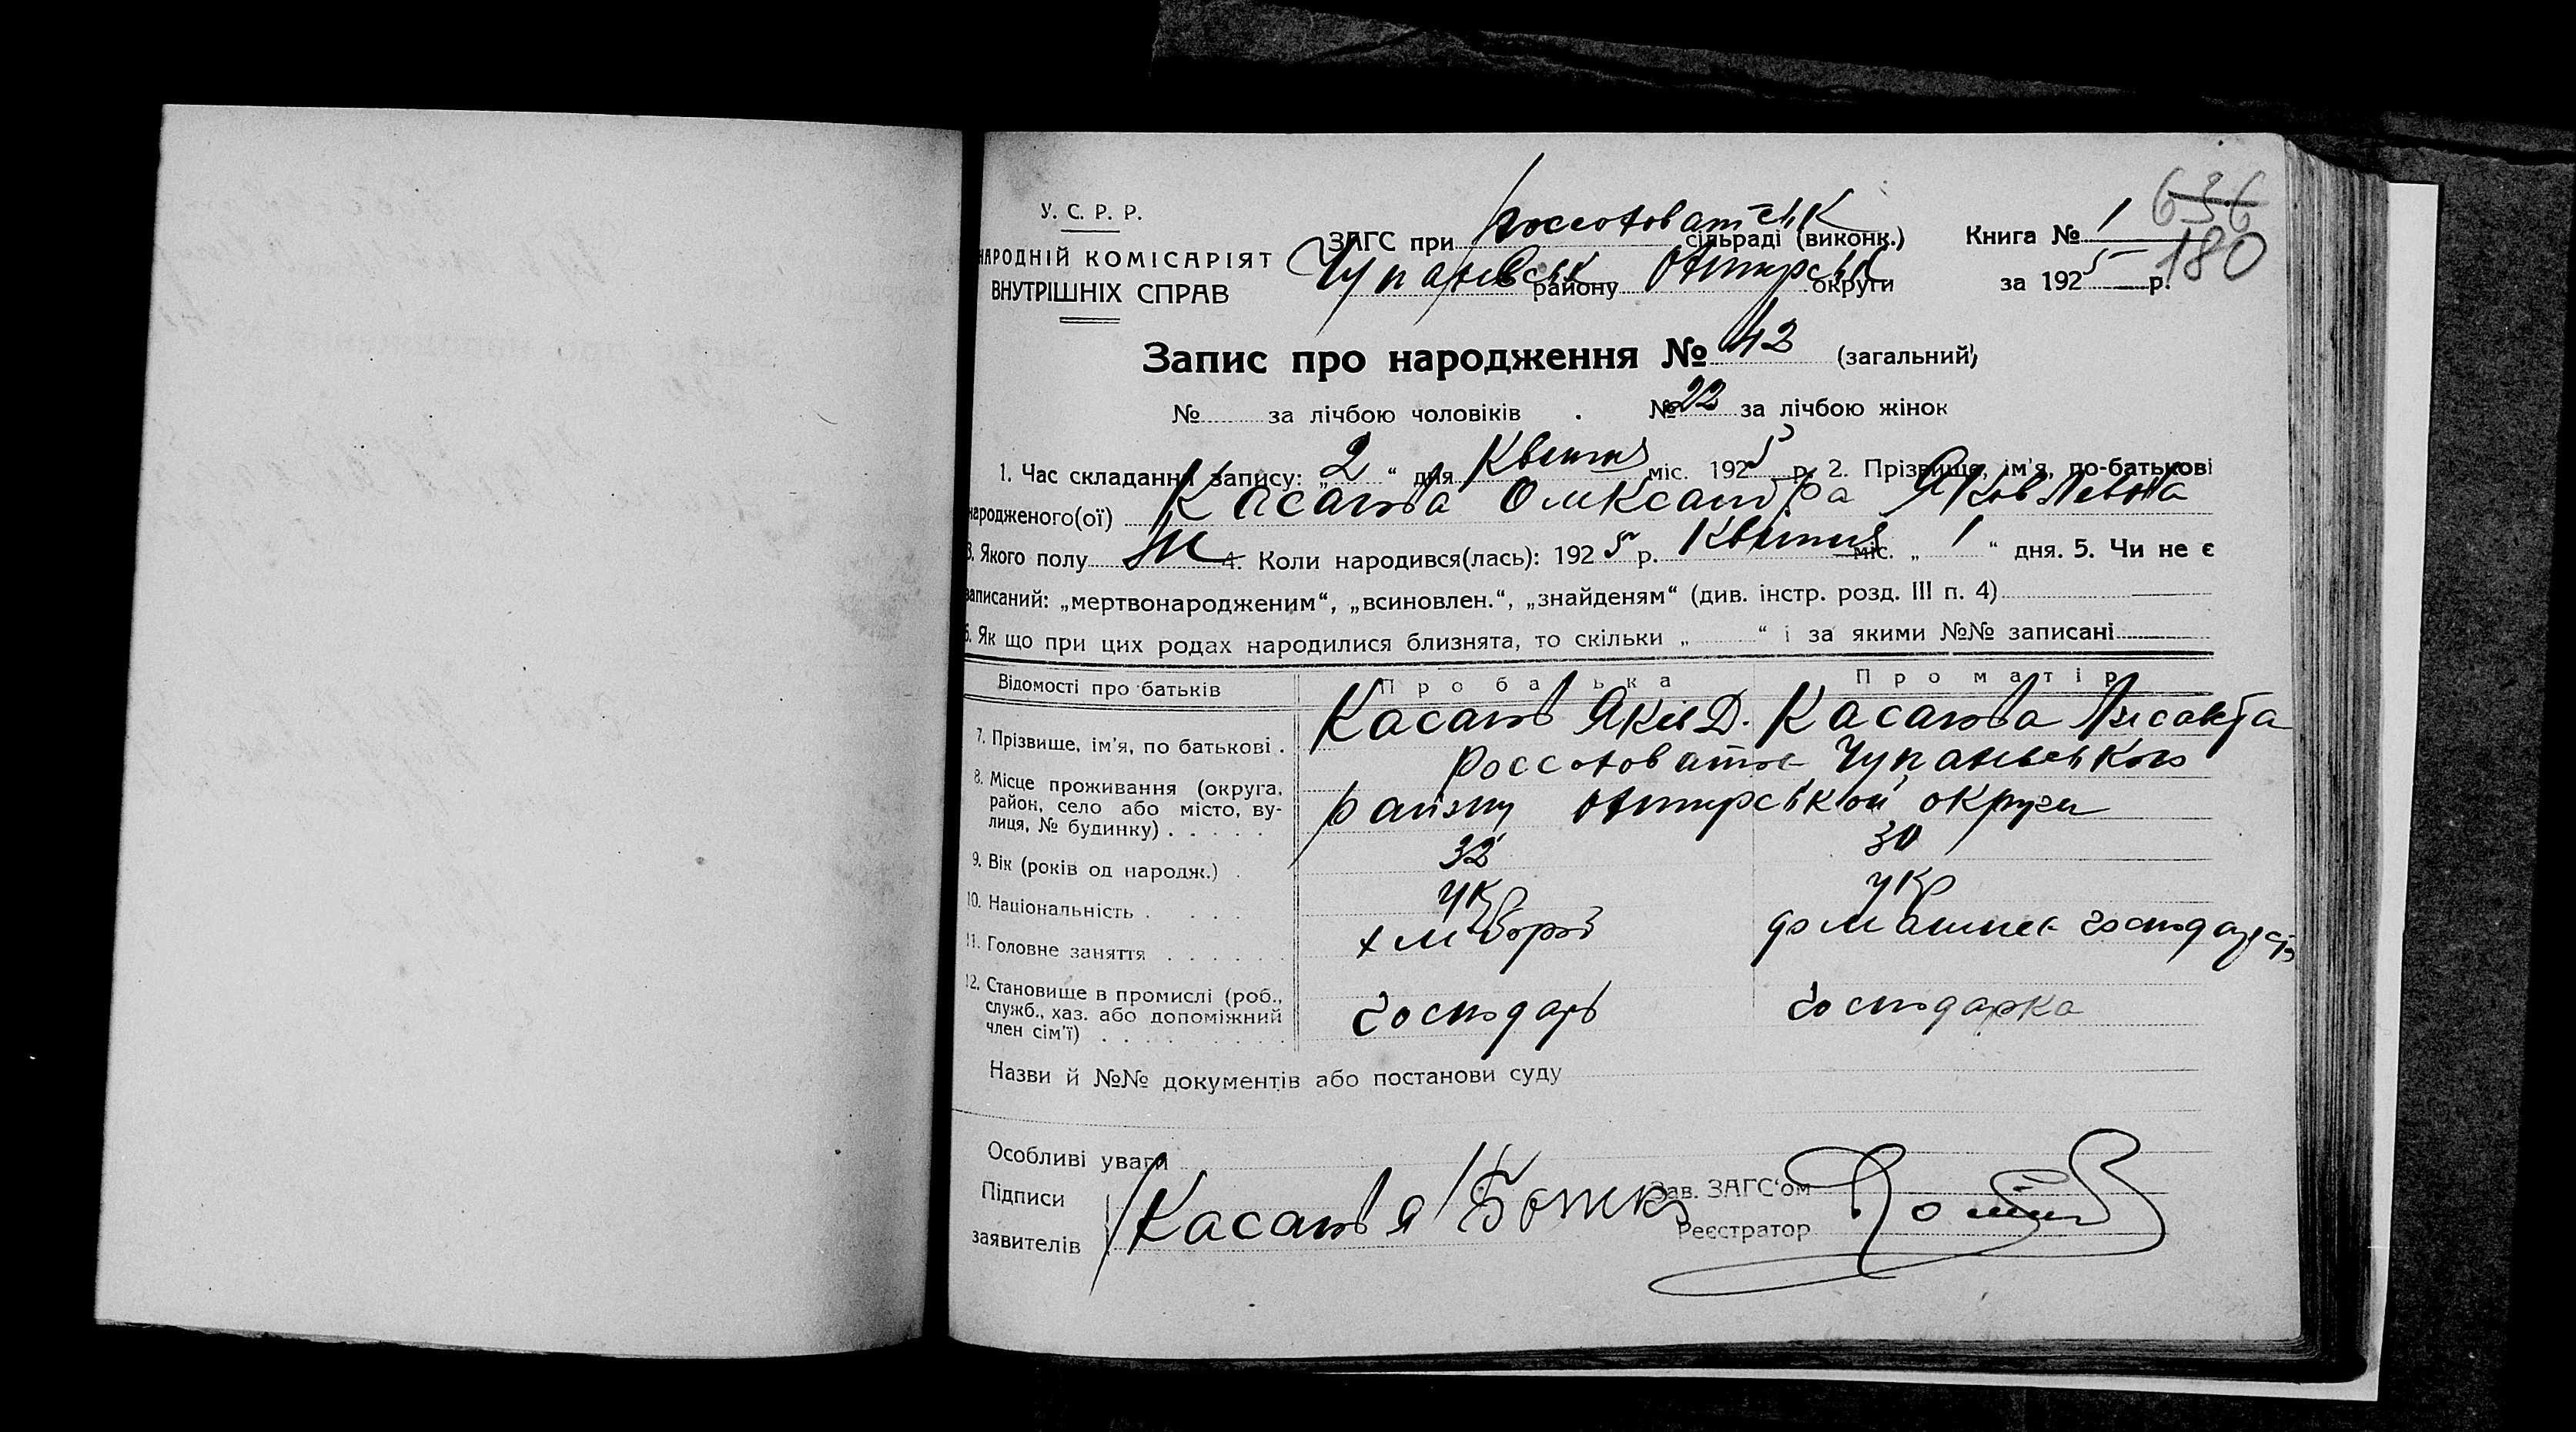 636
180
У. С. Р. Р.
НАРОДНІЙ КОМІСАРІЯТ
ВНУТРІШНІХ СПРАВ
ЗАГС при Россоховатськ сільраді (виконк.)
Чупахівськ району Охтирськ округи
Книга № 1
за 1925 р.
Запис про народження № 42 (загальний)
№ за лічбою чоловіків . № 22 за лічбою жінок
1. Час складання запису: „2“ дня Квітня міс. 1925 р. 2. Прізвище, ім'я, по-батькові
народженого(ої) Касагова Олександра Яковлевна
3. Якого полу Ж 4. Коли народився(лась): 1925 р. Квітня міс. „1“ дня. 5. Чи не є
записаний: „мертвонародженим“, „всиновлен.“, „знайденям“ (див. інстр. розд. III п. 4)
6. Як що при цих родах народилися близнята, то скільки „ “ і за якими №№ записані
Відомості про батьків Про батька Про матір
7. Прізвище, ім'я, по батькові . Касагов Яків Д. Касагова Лисавета
8. Місце проживання (округа, район, село або місто, вулиця, № будинку) . . . . . Россоховатое Чупахівського
району Охтирськой округи
9. Вік (років од народж.) . 32 30
10. Національність . . . . укр укр
11. Головне заняття . . . . . . хлібороб домашнее
12. Становище в промислі (роб., служб., хаз. або допоміжний член сім'ї) . . . . . . . . господарь господарка
Назви й №№ документів або постанови суду
Особливі уваги
Підписи
заявителів Касагов Я
Зав. ЗАГС'ом
Реєстратор